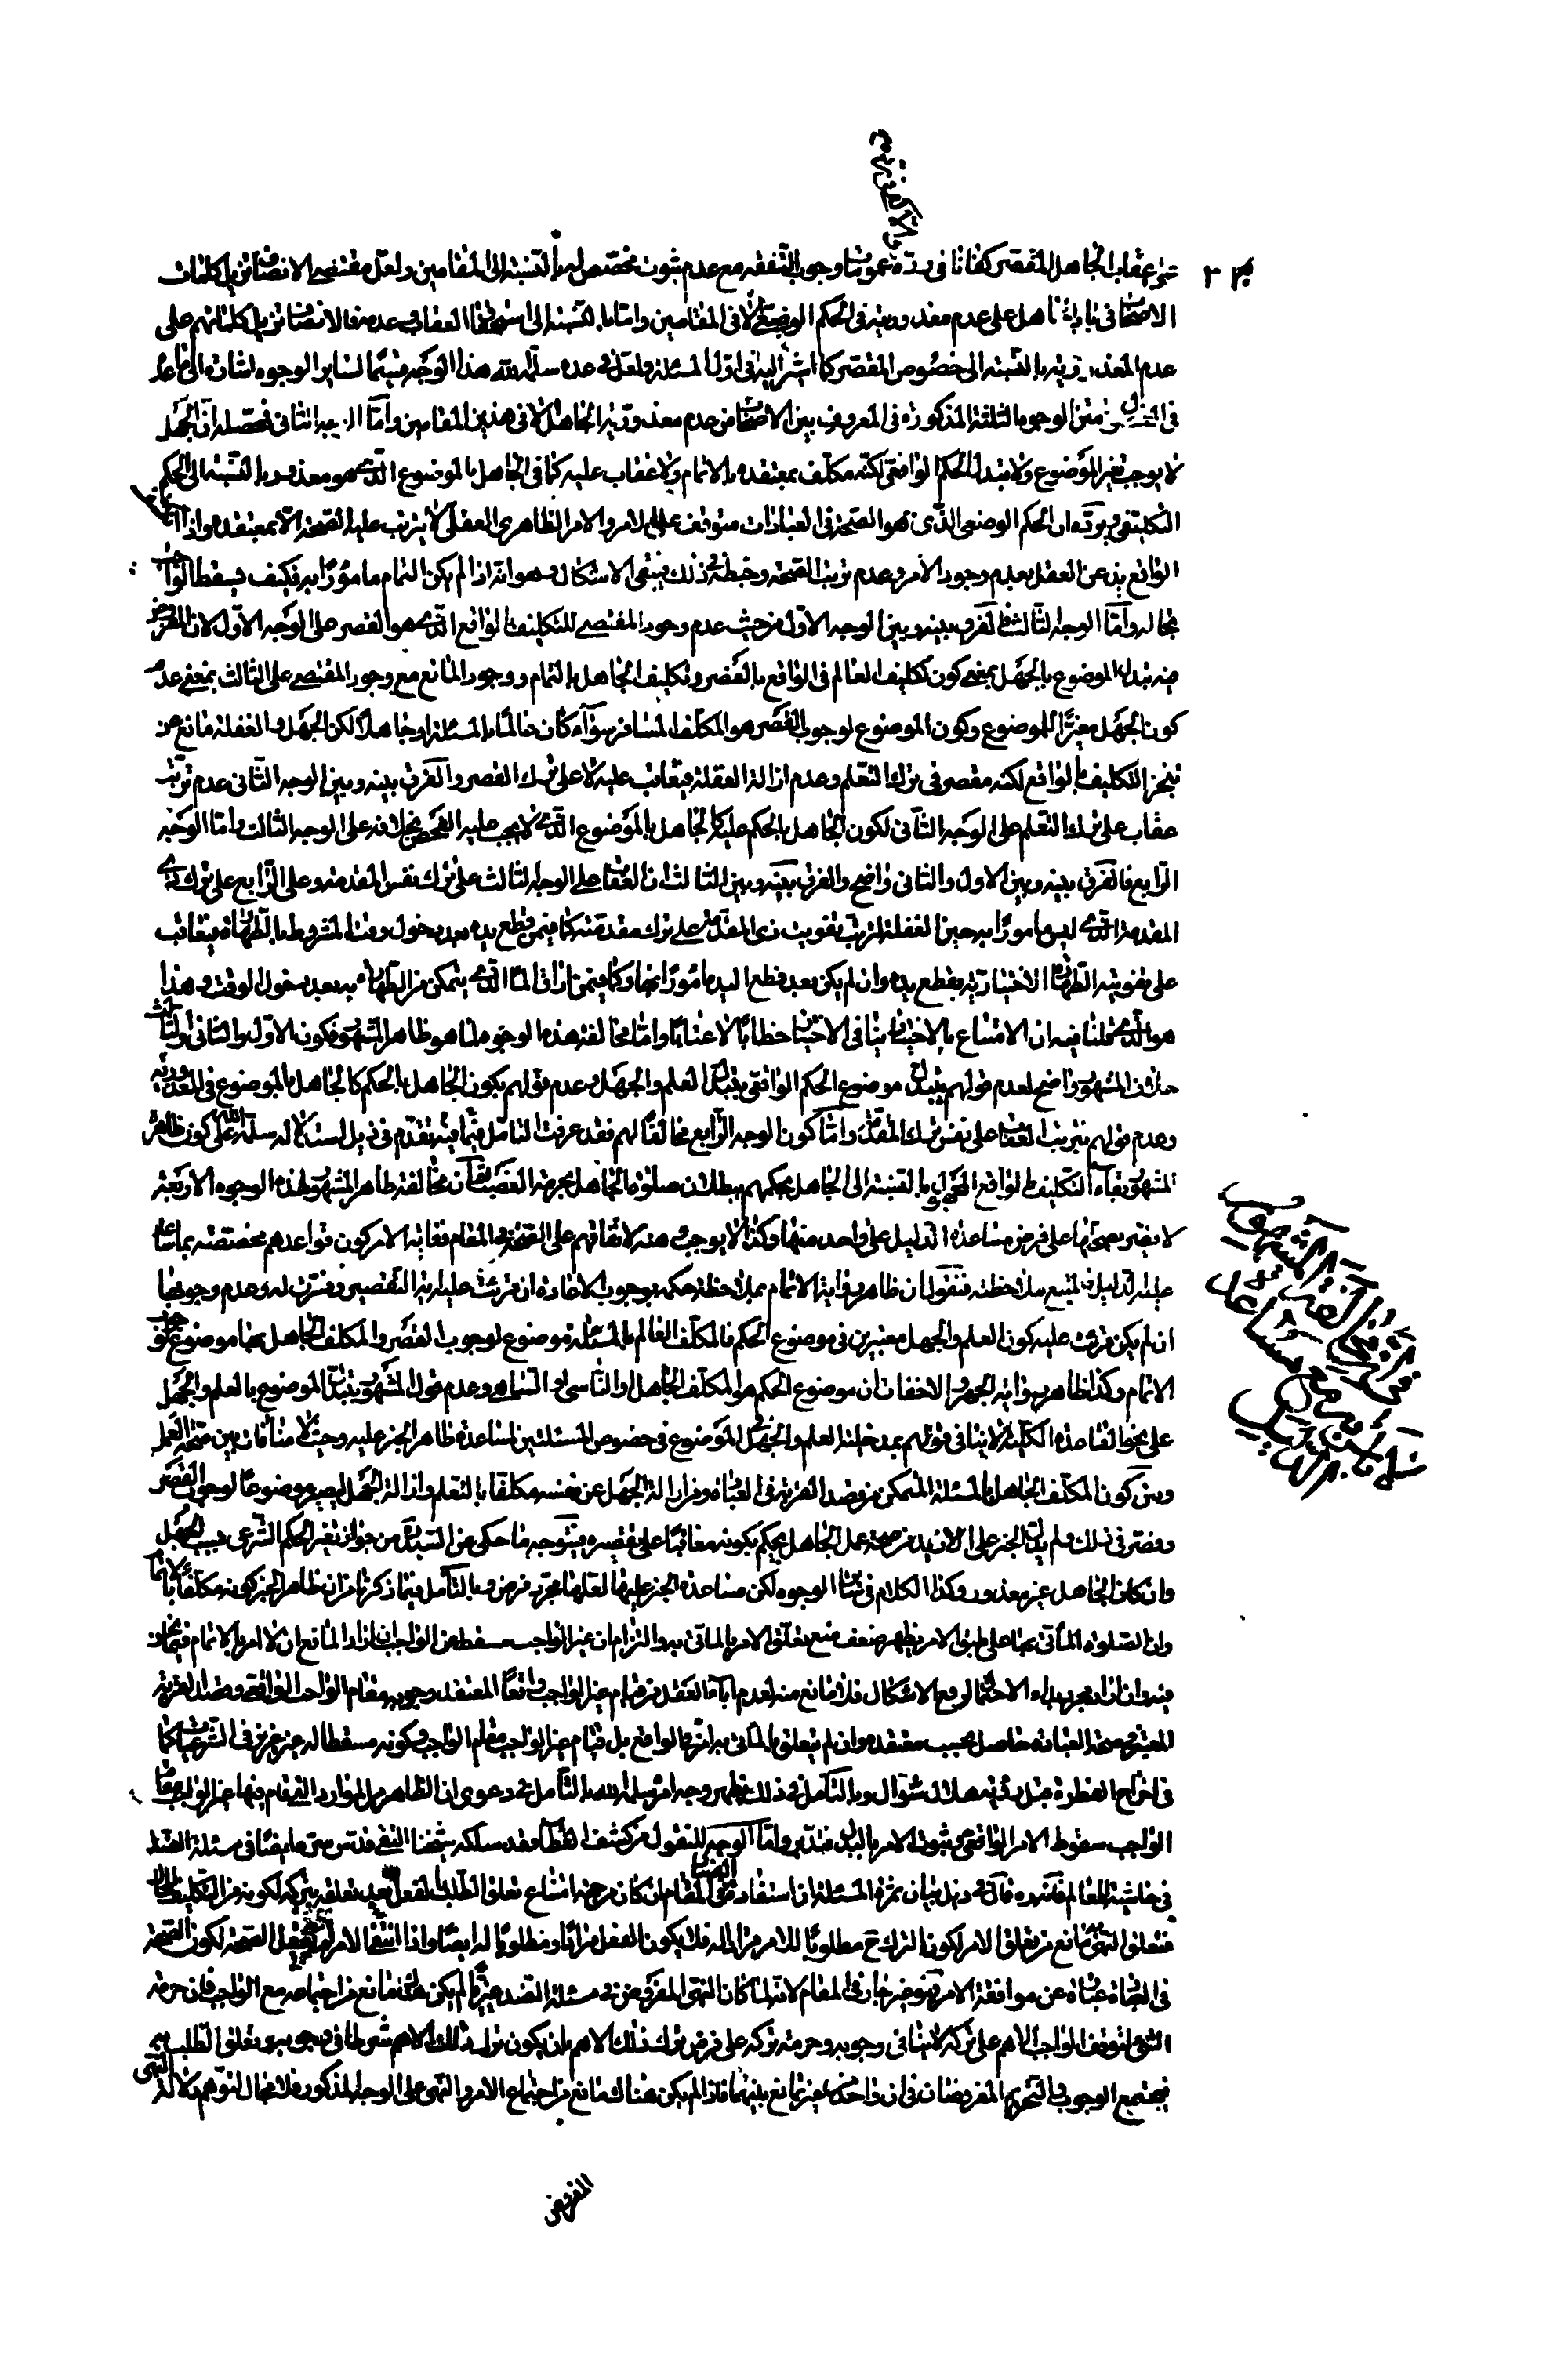 عقاب الجاهل المقصر كفانا في رده عمومات وجوب التفقه مع عدم ثبوت مخصص لها بالنسبة الى المقامين ولعل مقتضى الانصاف تنزيل كلمات
الاصحاب في على عدم معذوريته في الحكم الوضعي الا في المقامين واما بالنسبة الى استحقاق العقاب وعدمه فالانصاف تنزيل كلماتهم على
عدم بالنسبة الى خصوص المقصر كما اشرنا اليه في اول المسئلة ولعل في عده سلمه الله هذا الوجه قسيما لساير الوجوه اشارة الى
في من الوجوه الثلثة المذكورة في المعروف بين الاصحاب من عدم معذورية الجاهل الا في هذين المقامين واما الوجه الثاني فمحصله ان الجهل
لا يوجب تغير الموضوع ولا تبدل الحكم الواقعي لكنه مكلف بمعتقده بالاتمام ولا عقاب عليه كما في الجاهل بالموضوع الذي هو معذور بالنسبة الى الحكم
التكليفي ويرده ان الحكم الوضعي الذي هو الصحة في العبادات متوقف على الامر والامر الظاهري العقلي لا يترتب عليه الصحة الا بمعتقده واذا
الواقع يذعن العقل بعدم وجود الامر وعدم ترتب الصحة وخبطه في ذلك يبقى الاشكال وهو انه اذا لم يكن التمام مامورا به فكيف يسقط الواجب
بحاله واما الوجه الثالث فالفرق بينه وبين الوجه الاول من حيث عدم وجود المقتضي للتكليف الواقع الذي هو القصر على الوجه الاول لان المفروض
فيه تبدل الموضوع بالجهل بمعنى كون تكليف العالم في الواقع بالقصر وتكليف الجاهل بالتمام ووجود المانع مع وجود المقتضي على الثالث بمعنى عدم
كون الجهل مغيرا للموضوع وكون الموضوع لوجوب القصر هو المكلف المسافر سواء كان عالما بالمسئلة او جاهلا لكن الجهل والغفلة مانع من
تنجز التكليف بالواقع لكنه مقصر في ترك التعلم وعدم ازالة الغفلة فيعاقب عليه لا على ترك القصر والفرق بينه وبين الوجه الثاني عدم ترتب
عقاب على ترك التعلم على الوجه الثاني لكون الجاهل بالحكم عليه كالجاهل بالموضوع الذي لا يجب عليه الفحص بخلافه على الوجه الثالث واما الوجه
الرابع فالفرق بينه وبين الاول والثاني واضح والفرق بينه وبين الثالث ان العقاب على الوجه الثالث على ترك نفس المقدمة وعلى الرابع على ترك ذي
المقدمة الذي ليس مامورا به حين الغفلة لترتب تفويت ذي المقدمة على ترك مقدمته كما فيمن قطع يده بعد دخول وقت المشروط بالطهارة فيعاقب
على تفويته الطهارة الاختيارية بقطع يده وان لم يكن بعد قطع اليد مامورا بها وكما فيمن اراق الماء الذي يتمكن من الطهارة به بعد دخول الوقت وهذا
هو الذي قلنا فيه ان الامتناع بالاختيار ينافي الاختيار خطابا لا عقابا واما مخالفة هذه الوجوه لما هو ظاهر المشهور فكون الاول والثاني والثالث
خلاف المشهور واضح لعدم قولهم بتبدل موضوع الحكم الواقعي بتبدل العلم والجهل وعدم قولهم بكون الجاهل بالحكم كالجاهل بالموضوع في المعذورية
وعدم قولهم بترتب العقاب على نفس ترك المقدمة واما كون الوجه الرابع مخالفا لهم فقد عرفت التامل فيه فيما تقدم في ذيل استدلاله سلمه الله على كون ظاهر
المشهور بقاء التكليف بالواقع المجهول بالنسبة الى الجاهل بحكمهم ببطلان صلوة الجاهل بحرمة الغصب ثم ان مخالفة ظاهر المشهور لهذه الوجوه الاربعة
لا يضر بصحتها على فرض مساعدة الدليل على واحد منها وكذا لا يوجب وهنه لاتفاقهم على الصحة في المقام فغاية الامر كون قواعدهم مخصصة بما ساعد
عليه الدليل فليتبع ملاحظته فنقول ان ظاهر رواية الاتمام بملاحظة حكمه بوجوب الاعادة ان قرئت عليه اية التقصير وفسرت له وعدم وجوبها
ان لم يكن قرئت عليه كون العلم والجهل معتبرين في موضوع الحكم فالمكلف العالم بالمسئلة موضوع لوجوب القصر والمكلف الجاهل بها موضوع لوجوب
الاتمام وكذا ظاهر رواية الجهر والاخفات ان موضوع الحكم هو المكلف الجاهل او الناسي او الساهي وعدم قول المشهور بتبدل الموضوع بالعلم والجهل
على نحو القاعدة الكلية لا ينافي قولهم بمدخلية العلم والجهل في الموضوع في خصوص المسئلتين لمساعدة ظاهر الخبر عليه وحينئذ لا منافات بين صحة العمل
وبين كون المكلف الجاهل بالمسئلة المتمكن من قصد القربة في العبادة ومن ازالة الجهل عن نفسه مكلفا بالتعلم وازالة الجهل ليصير موضوعا لوجوب القصر
وقصر في ذلك ولم يدل الخبر على الازيد من صحة عمل الجاهل بحكم بكونه معاقبا على تقصيره فيتوجه ما حكى عن السيد من جواز تغير الحكم الشرعي بسبب الجهل
وان كان الجاهل غير معذور وكذا الكلام في ساير الوجوه لكن مساعدة الخبر عليها لعلها مجرد فرض وبالتامل فيما ذكرنا من ان ظاهر الخبر كونه مكلفا بالاتمام
وان الصلوة الماتي بها على طبق الامر يظهر ضعف منع تعلق الامر بالماتي به والتزام ان غير الواجب مسقط عن الواجب فان اراد المانع ان لا امر بالاتمام فيما نحن
فيه وان اراد مجرد ابداء الاحتمال لرفع الاشكال فلا مانع منه لعدم اباء العقد من قيام غير الواجب واقعا المعتقد وجوبه مقام الواجب الواقعي وقصد القربة
المعتبر في صحة العبادة حاصل بحسب معتقده وان لم يتعلق بالماتي به امر في الواقع بل قيام غير الواجب مقام الواجب وكونه مسقطا له غير عزيز في الشرعيات كما
في اخراج الفطرة قبل رؤية هلال شوال وبالتامل في ذلك يظهر وجه امره سلمه الله بالتامل في دعوى ان الظاهر من الموارد التي قام فيها غير الواجب مقام
الواجب سقوط الامر الواقعي وثبوت الامر بالبدل فتدبر واما الوجه المنقول من كشف الغطاء فقد سلكه شيخنا التقي قدس سره ايضا في مسئلة الضد
في حاشية المعالم فانه ره قال في ذيل بيان ثمرة المسئلة ان استفادة الفساد في المقام ان كان من جهة امتناع تعلق الطلب بالفعل بعد تعلقه بتركه لكونه من التكليف المحال
فتعلق النهي به مانع من تعلق الامر لكون الترك ح مطلوبا للامر مرادا له فلا يكون الفعل مرادا ومطلوبا له ايضا واذا انتفى الامر لم يعقل الصحة لكون الصحة
في العبادة عبارة عن موافقة الامر فهو غير جار في المقام لانه لما كان النهي المفروض في مسئلة الضد غيريا لم يكن هناك مانع من اجتماعه مع الواجب فان حرمة
الشيء لتوقف الواجب الاهم على تركه لا ينافي وجوبه وحرمة تركه على فرض ترك ذلك الاهم بان يكون ترك ذلك الاهم شرطا في وجوبه وتعلق الطلب به
فيجتمع الوجوب والتحريم المفروضان في ان واحد من غير تمانع بينهما فاذا لم يكن هناك مانع من اجتماع الامر والنهي على الوجه المذكور فلا مجال لتوهم دلالة النهي
المفروض